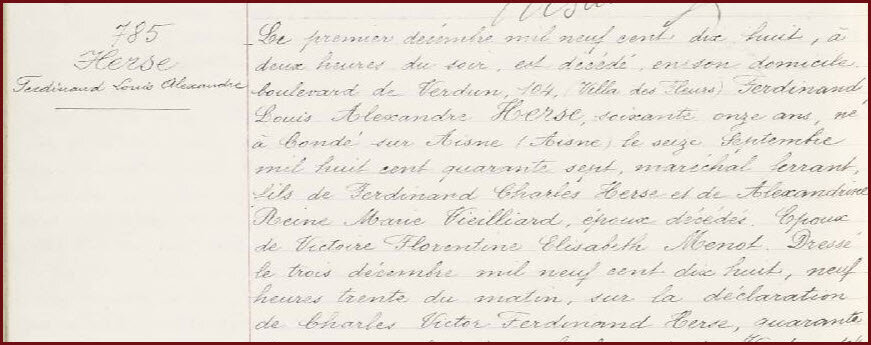 785
Herse
Ferdinand Louis Alexandre
Le premier décembre mil neuf cent dix huit, à
deux heures du soir, est décédé, en son domicile
boulevard de Verdun, 104, (Villa des Fleurs) Ferdinand
Louis Alexandre Herse, soixante onze ans, né
à Condé sur Aisne (Aisne) le seize Septembre
mil huit cent quarante sept, maréchal ferrant,
fils de Ferdinand Charles Herse et de Alexandrine
Reine Marie Vieilliard, époux décédés. Epoux
de Victoire Florentine Elisabeth Menot. Dressé
le trois décembre mil neuf cent dix huit, neuf
heures trente du matin, sur la déclaration
de Charles Victor Ferdinand Herse, quarante